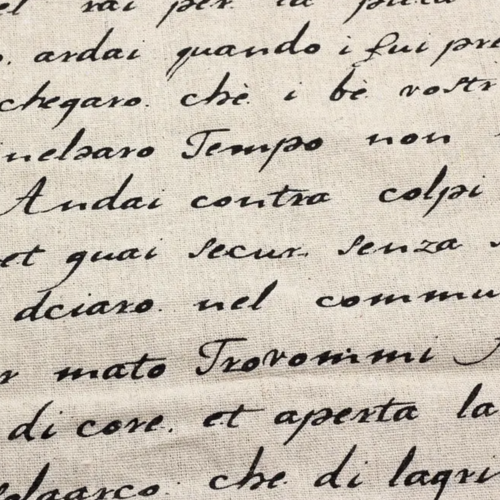 el rai per la pieta
o. ardai quando i fui pre
chegaro. chè i bè vostr
nelsaro Tempo non
Andai contra colpi
et guai secur. senza s
dciaro. nel commu
r mato Trovommi A
di core. et aperta la
elaarco. che di lagri